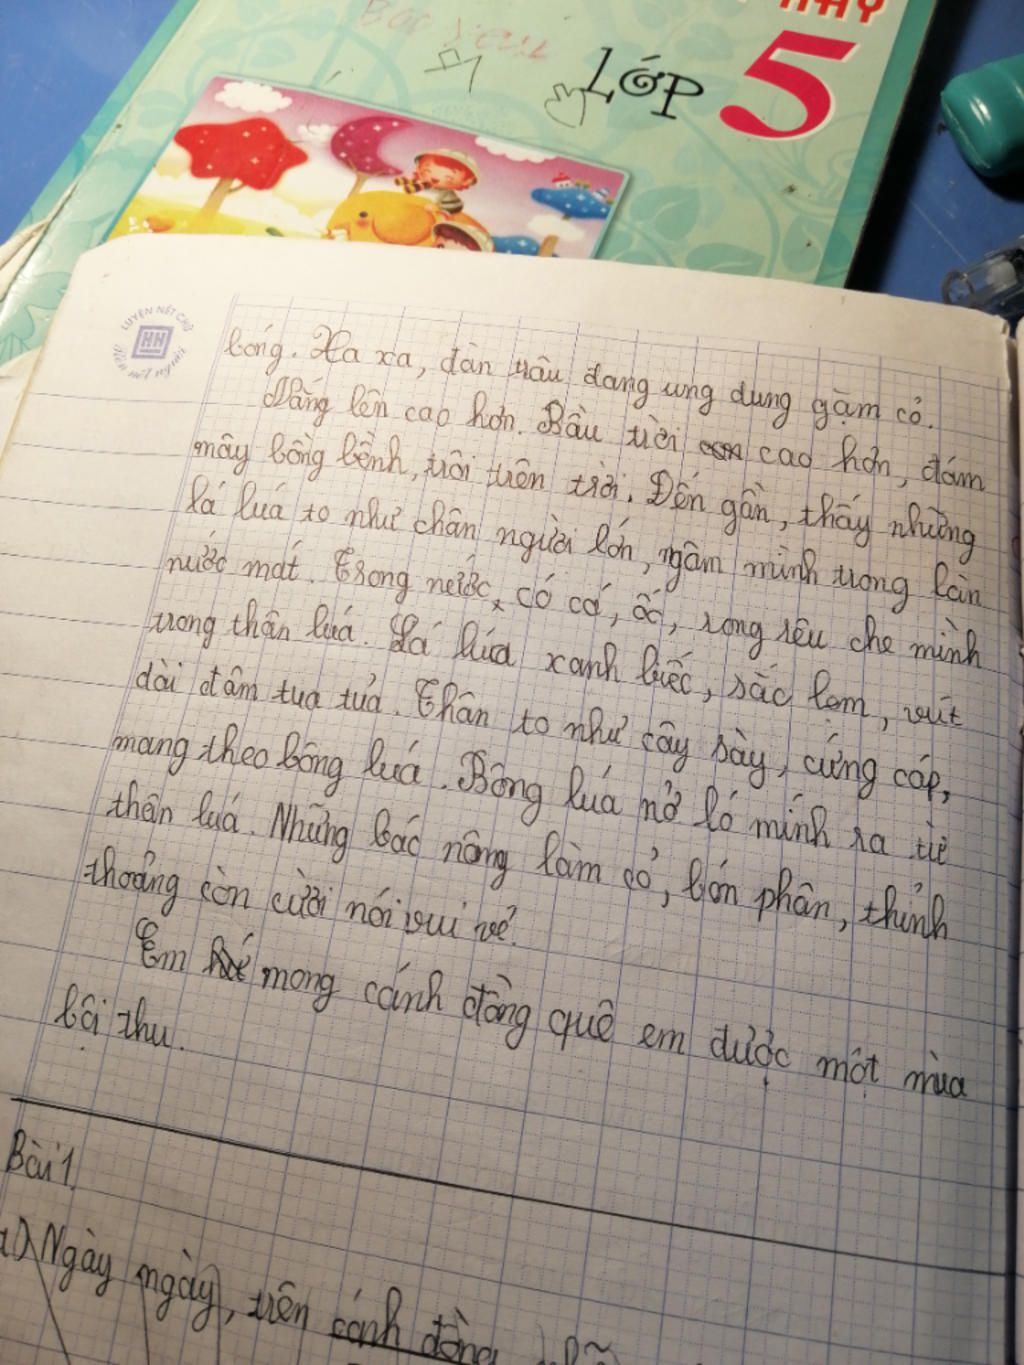 HAY
LỚP 5
LUYỆN NÉT CHỮ
HN
Rèn nết người
bóng. Xa xa, đàn trâu đang ung dung gặm cỏ.
Nắng lên cao hơn. Bầu trời cao hơn, đám
mây bồng bềnh, trôi trên trời. Đến gần, thấy những
lá luá to như chân người lớn, ngâm mình trong làn
nước mát. Trong nước, có cá, ốc, rong rêu che mình
trong thân luá. Lá lúa xanh biếc, sắc lẹm, vút
dài đâm tua tủa. Thân to như cây sày, cứng cáp,
mang theo bông luá. Bông lúa nở ló mính ra từ
thân luá. Những bác nông làm cỏ, bón phân, thỉnh
thoảng còn cười nói vui vẻ.
Em mong cánh đồng quê em được một mùa
bội thu.
Bài 1.
1) Ngày ngày, trên cánh đồng